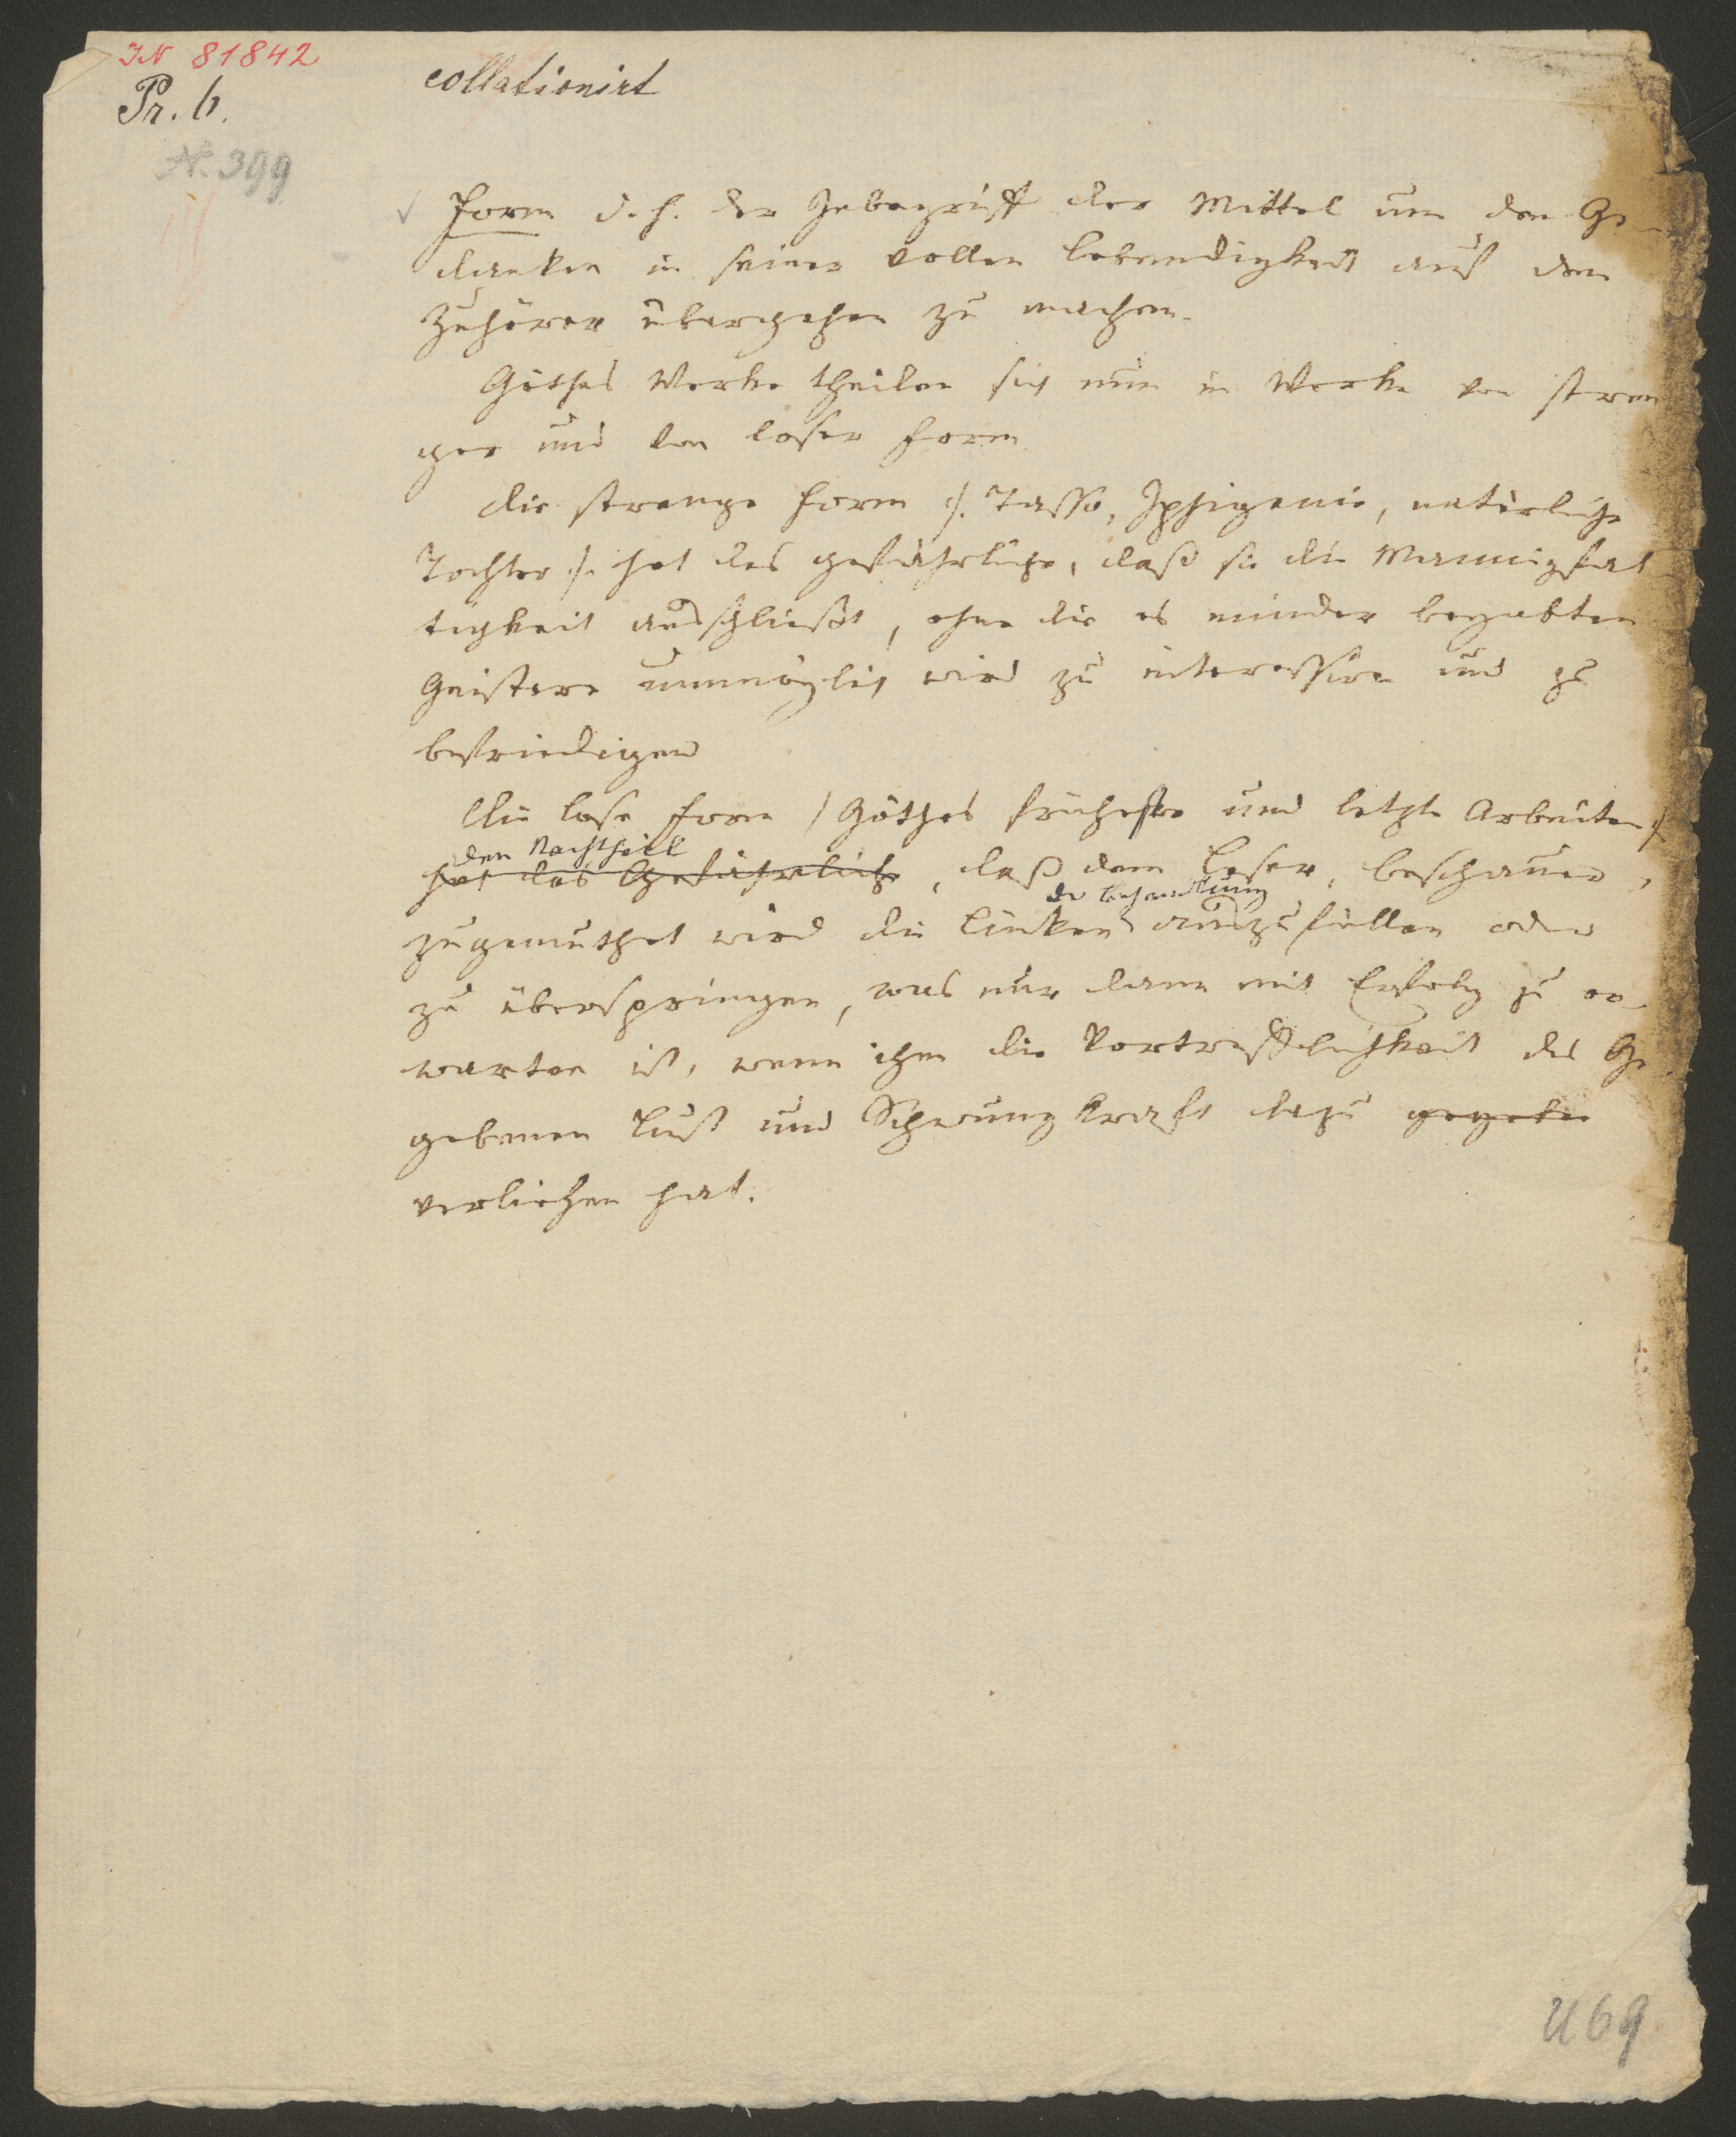 IN 81842
Pr. 6.
collationirt
N. 399
Form d. h. der Inbegriff der Mittel um den Ge-
danken in seiner vollen Lebendigkeit auf den
Zuhörer übergehen zu machen.
Göthes Werke theilen sich nun in Werke von stren
ger und von loser Form
die strenge Form /: Tasso, Iphigenie, natürliche
Tochter :/ hat das gefährliche, daß sie die Mannigfal-
tigkeit ausschließt, ohne die es minder begabten
Geistern unmöglich wird zu interessiren und zu
befriedigen
Die lose Form / Göthes früheste und letzte Arbeiten /
den Nachtheil
hat das Gefährliche, daß dem Leser, Beschauer,
der Behandlung
zugemuthet wird die Lücken auszufüllen oder
zu überspringen, was nur dann mit Erfolg zu er-
warten ist, wenn ihm die Vortrefflichkeit des Ge-
gebenen Lust und Schwungkraft dazu gegeben
verliehen hat.
U 69